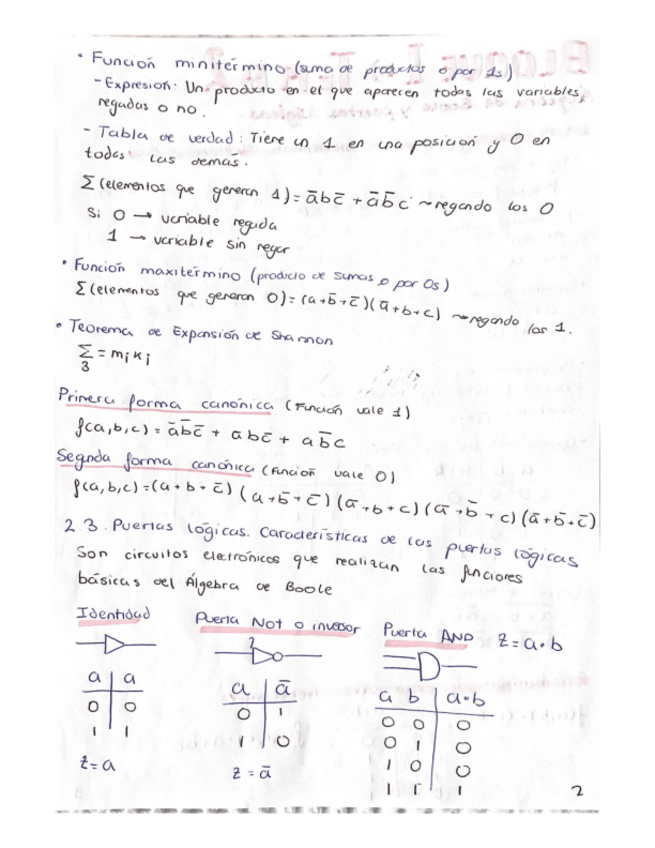 • Función minitérmino (suma de productos o por 1s)
- Expresión: Un producto en el que aparecen todas las variables,
negadas o no.
- Tabla de verdad: Tiene un 1 en una posición y 0 en
todas las demás.
Σ(elementos que generan 1) = a̅bc̅ + a̅b̅c ~ negando los 0
Si 0 → variable negada
1 → variable sin negar
• Función maxitérmino (producto de sumas o por 0s)
Σ(elementos que generan 0) = (a+b̅+c̅)(a̅+b+c) ~ negando los 1.
• Teorema de Expansión de Shannon
Σ = mᵢkᵢ
3
Primera forma canónica (Función vale 1)
f(a,b,c) = a̅b̅c̅ + abc̅ + ab̅c
Segunda forma canónica (Función vale 0)
f(a,b,c) = (a+b+c̅)(a+b̅+c̅)(a̅+b+c)(a̅+b̅+c)(a̅+b̅+c̅)
2.3. Puertas lógicas. Características de las puertas lógicas
Son circuitos electrónicos que realizan las funciones
básicas del Álgebra de Boole
Identidad Puerta Not o inversor Puerta AND z = a·b
a a
0 0
1 1
z = a
a a̅
0 1
1 0
z = a̅
a b a·b
0 0 0
0 1 0
1 0 0
1 1 1
2